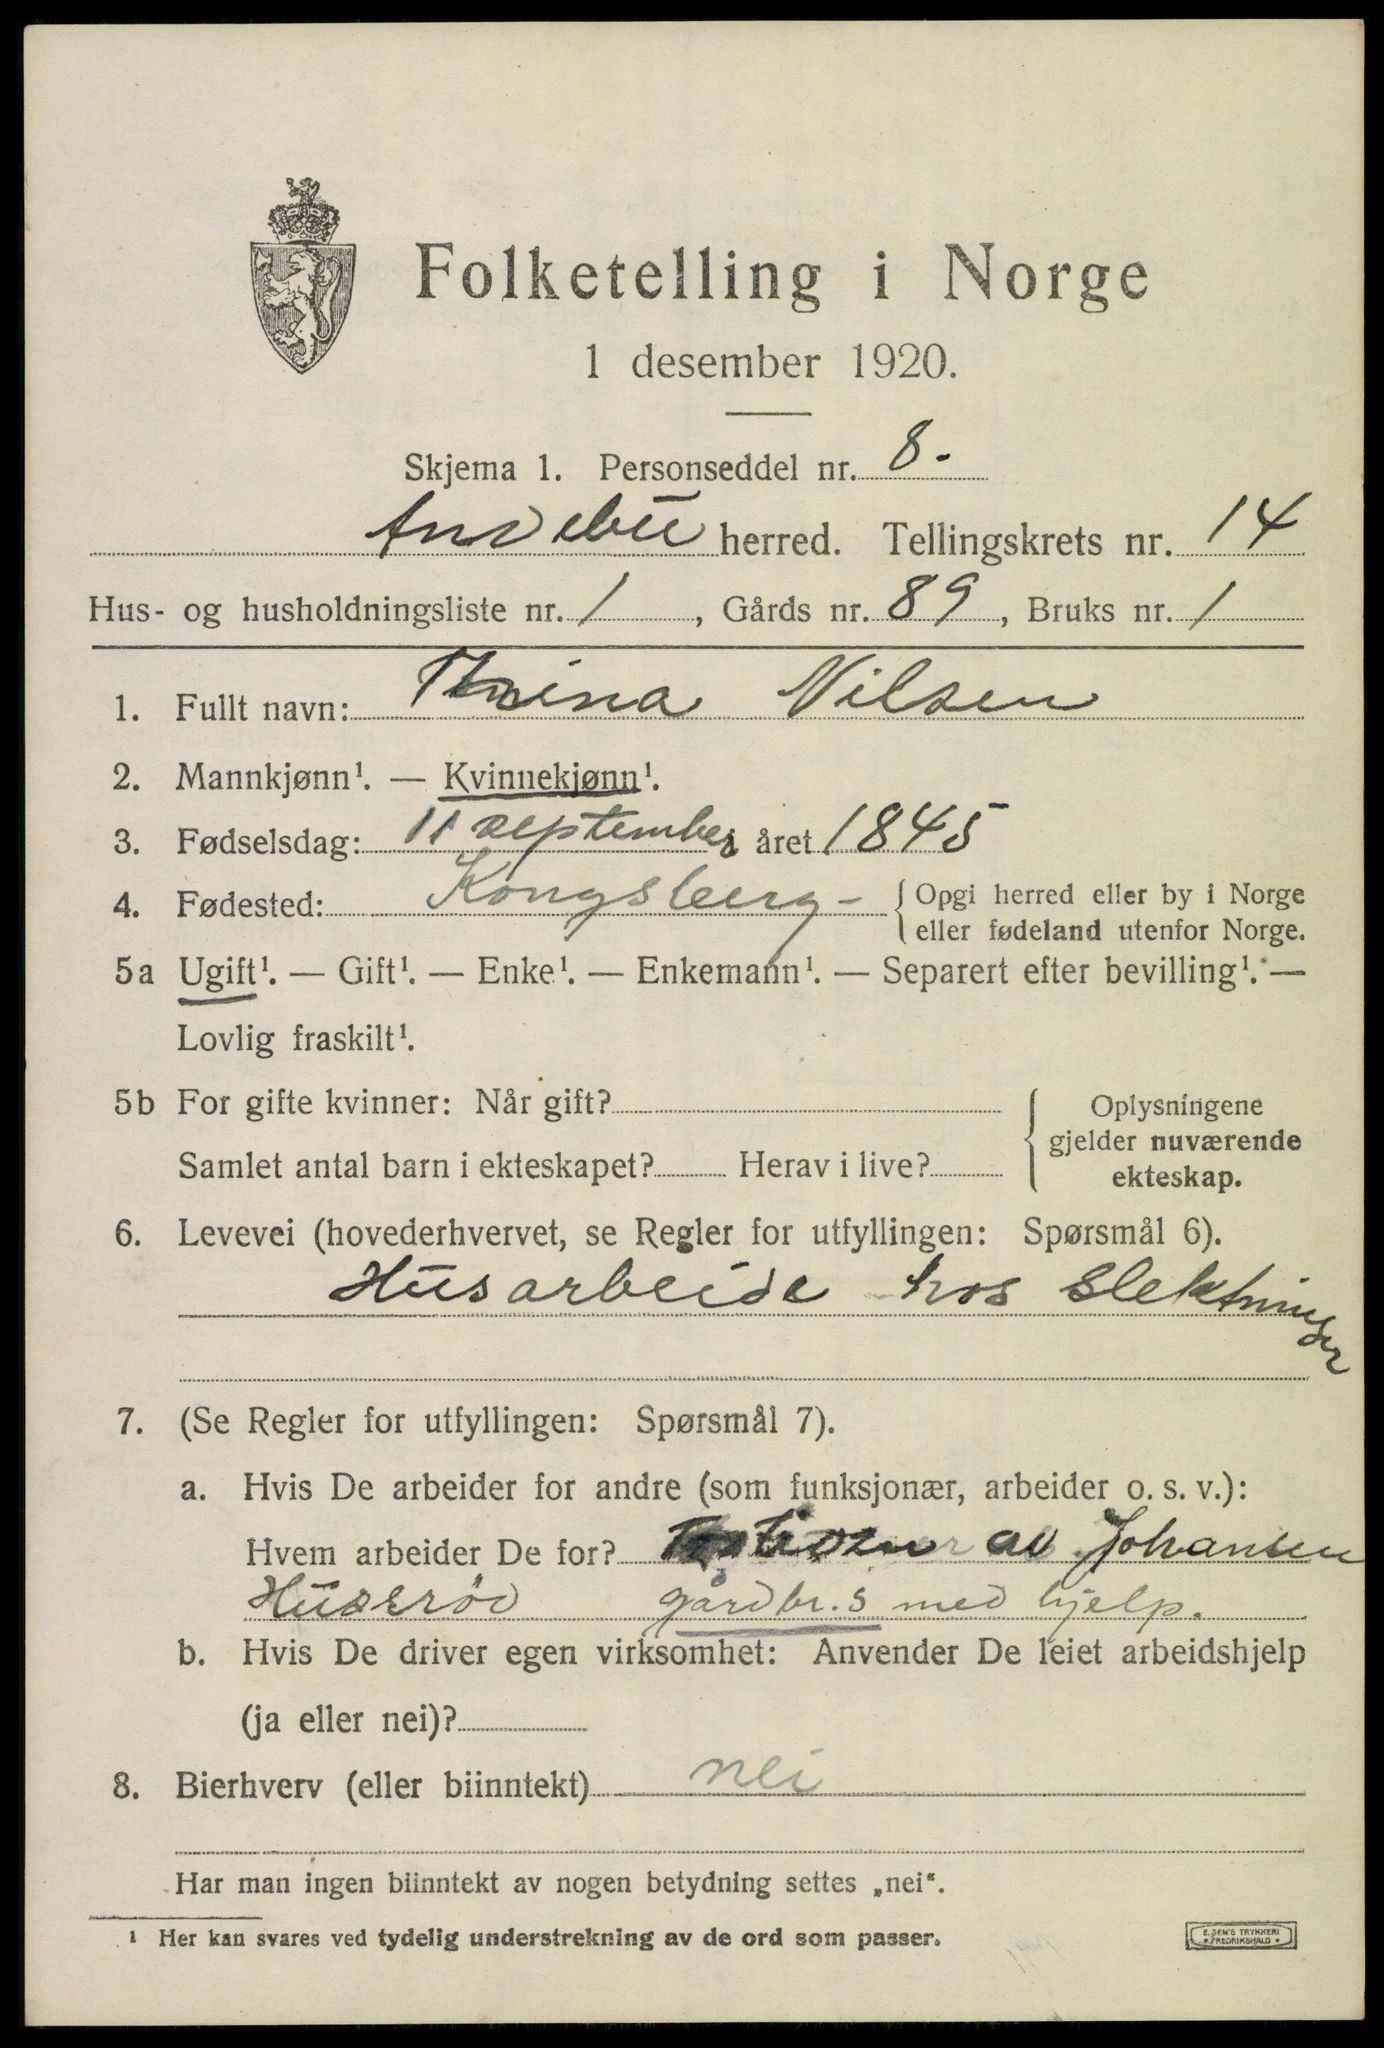 Folketelling i Norge
1 desember 1920.
Skjema 1. Personseddel nr. 8.
Andebu herred. Tellingskrets nr. 14
Hus- og husholdningsliste nr. 1, Gårds nr. 89, Bruks nr. 1
1. Fullt navn: Nilsen
2. Mannkjønn¹. — Kvinnekjønn¹.
3. Fødselsdag: 11 september året 1845
4. Fødested: Kongsberg - { Opgi herred eller by i Norge
eller fødeland utenfor Norge.
5a Ugift¹. — Gift¹. — Enke¹. — Enkemann¹. — Separert efter bevilling¹. —
Lovlig fraskilt¹.
5b For gifte kvinner: Når gift?
Samlet antal barn i ekteskapet? Herav i live?
{ Oplysningene
gjelder nuværende
ekteskap.
6. Levevei (hovederhvervet, se Regler for utfyllingen: Spørsmål 6).
Husarbeide hos slektninger
7. (Se Regler for utfyllingen: Spørsmål 7).
a. Hvis De arbeider for andre (som funksjonær, arbeider o. s. v.):
Hvem arbeider De for? av Johansen
Husrød gårdbr. s med hjelp.
b. Hvis De driver egen virksomhet: Anvender De leiet arbeidshjelp
(ja eller nei)?
8. Bierhverv (eller biinntekt) nei
Har man ingen biinntekt av nogen betydning settes „nei“.
¹ Her kan svares ved tydelig understrekning av de ord som passer.
E. SEM'S TRYKKERI
FREDRIKSHALD